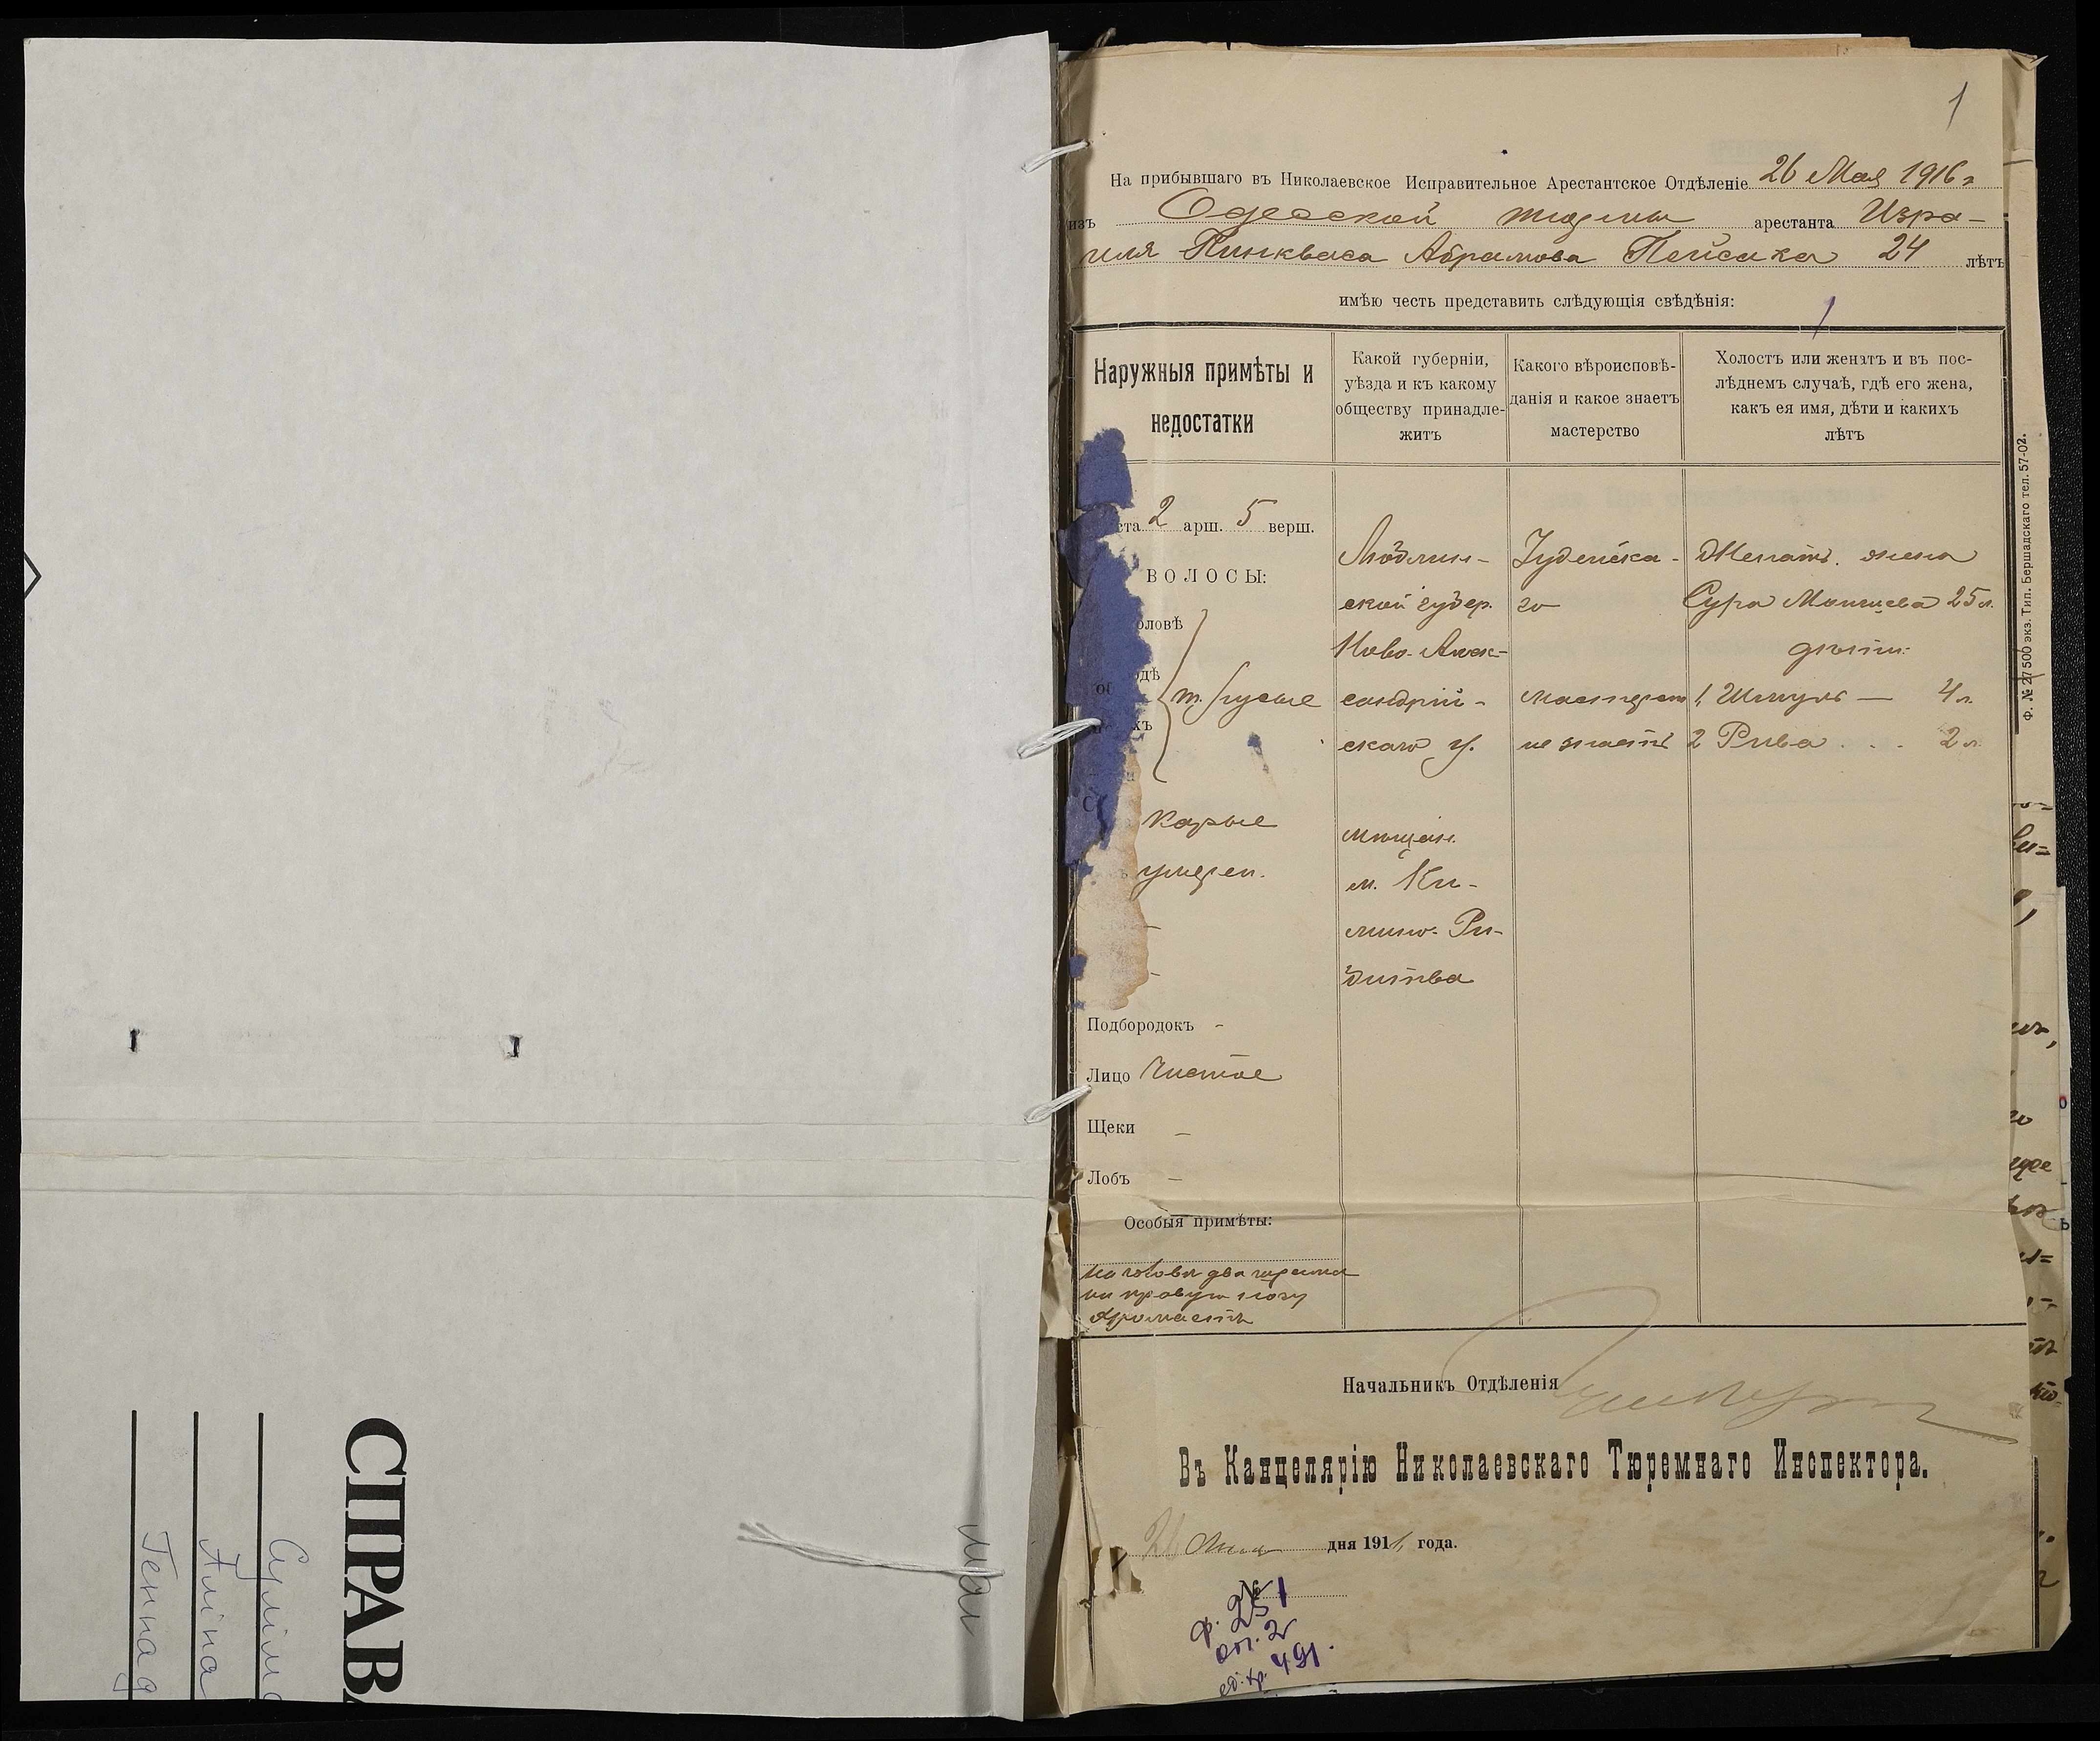 1
На прибывшаго въ Николаевское Исправительное Арестантское Отдѣленіе 26 Мая 1916 г
изъ Одесской тюрьмы арестанта Изра-
иля Пинкваса Абрамова Пейсака 24 лѣтъ
имѣю честь представить слѣдующія свѣдѣнія:
1
Наружныя примѣты и
недостатки
Какой губерніи,
уѣзда и къ какому
обществу принадле-
житъ
Какого вѣроисповѣ-
данія и какое знаетъ
мастерство
Холостъ или женатъ и въ пос-
лѣднемъ случаѣ, гдѣ его жена,
какъ ея имя, дѣти и какихъ
лѣтъ
ста 2 арш. 5 верш.
ВОЛОСЫ:
оловѣ
одѣ
хъ
т. русые
Карые
умерен.
-
-
Подбородокъ -
Лицо Чистое
Щеки -
Лобъ -
Особыя примѣты:
на голове два шрама
на правую ногу
хромаетъ
Люблин-
ской губер.
Ново-Алек-
сандрій-
скаго у.
мѣщан.
м.
Іудейска-
го
мастерст
не знаетъ
Женатъ. жена
Сура 25 л.
дѣти:
1, Шмуль — 4 л.
2 Рива . . 2 л.
Начальникъ Отдѣленія
Въ Канцелярію Николаевскаго Тюремнаго Инспектора.
дня 191 года.
№
ф. 251
оп. 2
ед. хр. 491.
Ф. № 27 500 экз. Тип. Бершадскаго тел. 57-02.
СПРАВ
Аліна
Геннад